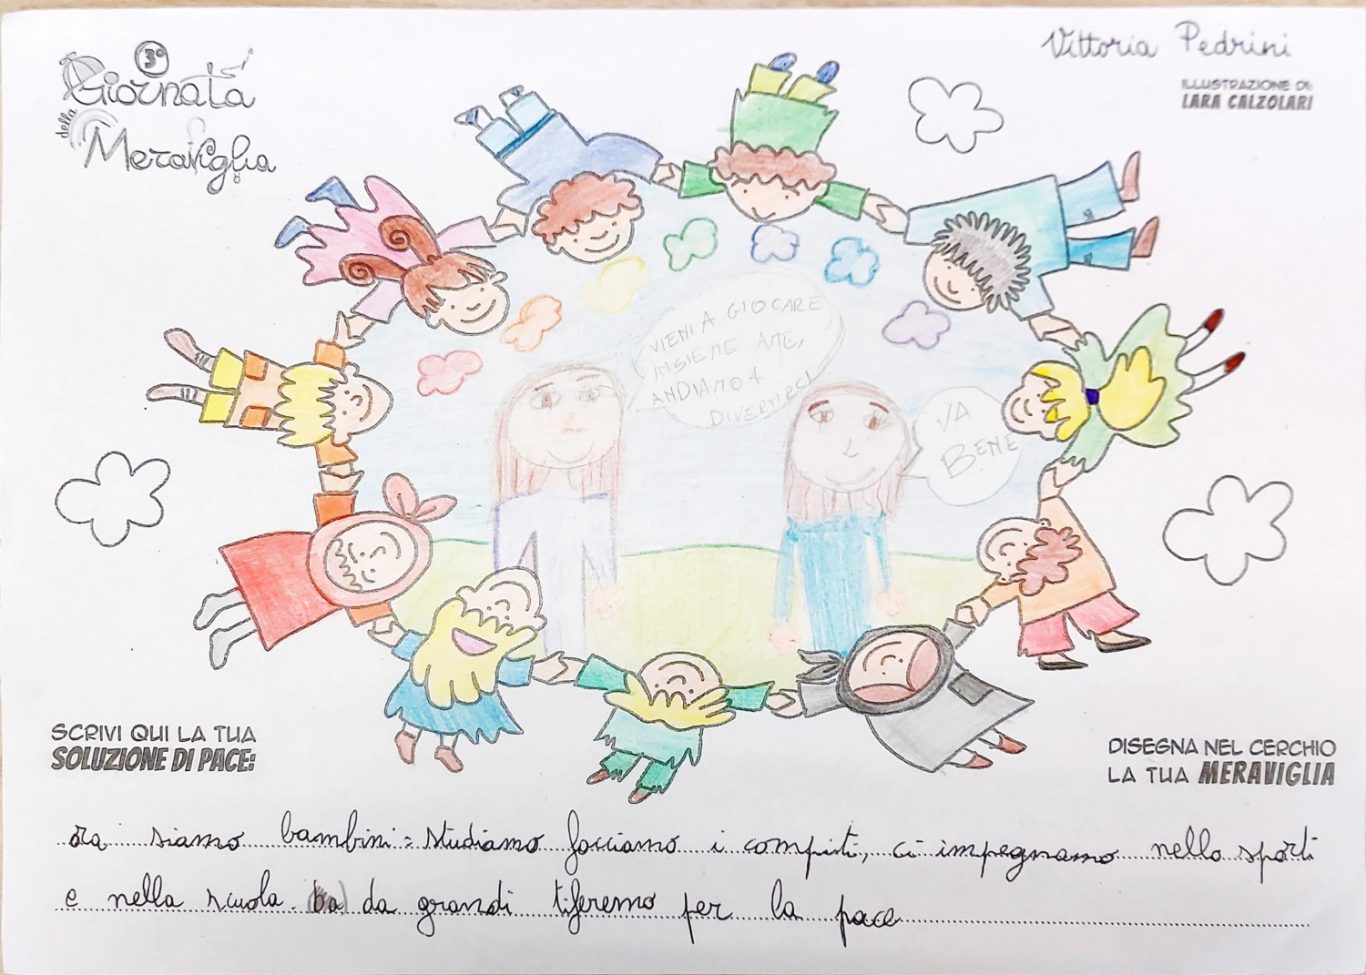 3° Giornata
della
Meraviglia
Vittoria Pedrini
ILLUSTRAZIONE DI:
LARA CALZOLARI
VIENI A GIOCARE
INSIEME A ME,
ANDIAMO A
DIVERTIRCI
VA
BENE
SCRIVI QUI LA TUA
SOLUZIONE DI PACE:
DISEGNA NEL CERCHIO
LA TUA MERAVIGLIA
ora siamo bambini: studiamo facciamo i compiti, ci impegnamo nello sport
e nella scuola. da grandi tiferemo per la pace